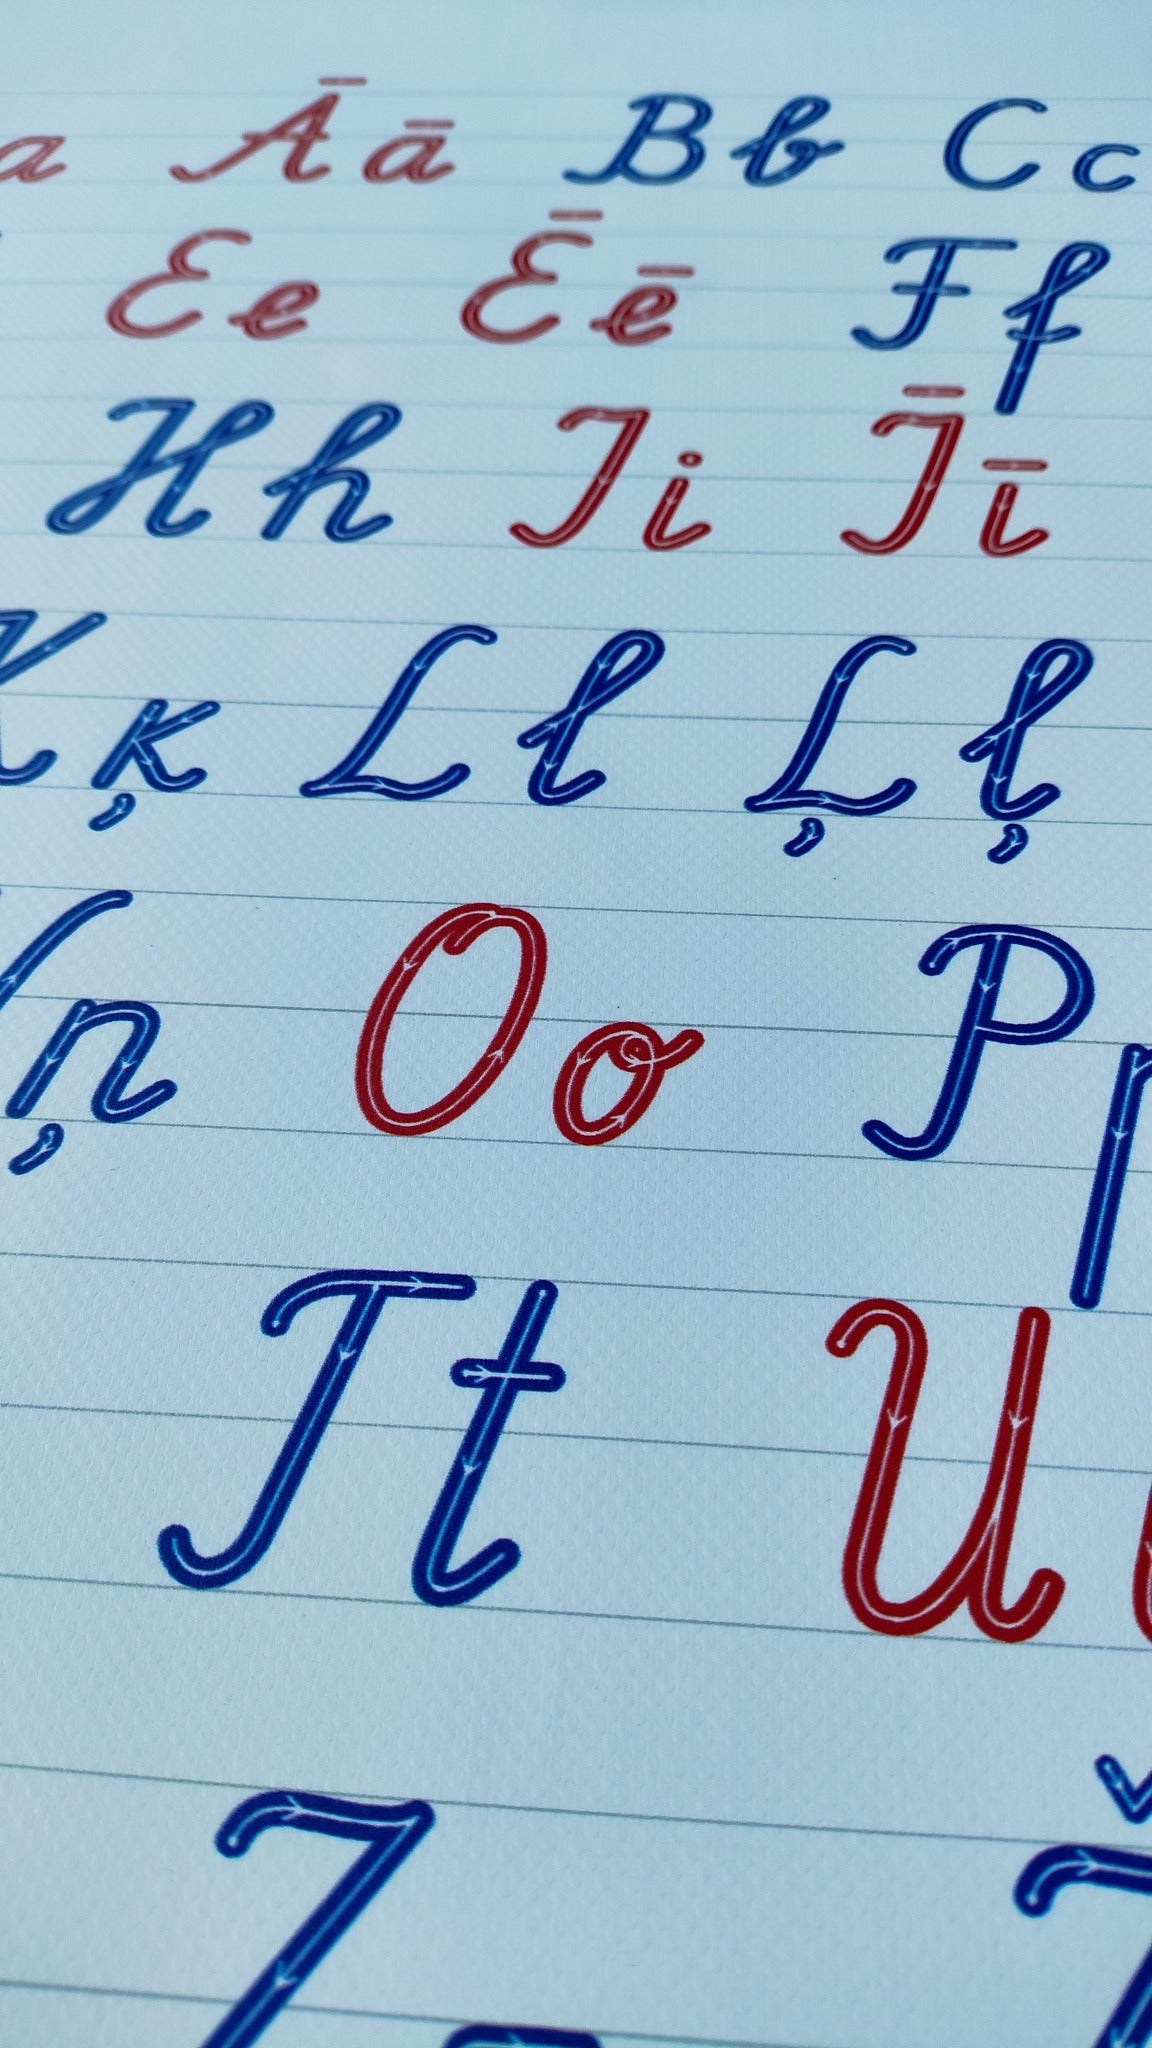 a Ā ā B b C c
E e Ē ē F f
H h I i Ī ī
Ķ ķ L l Ļ ļ
Ņ ņ O o P p
T t U u
Z z Ž